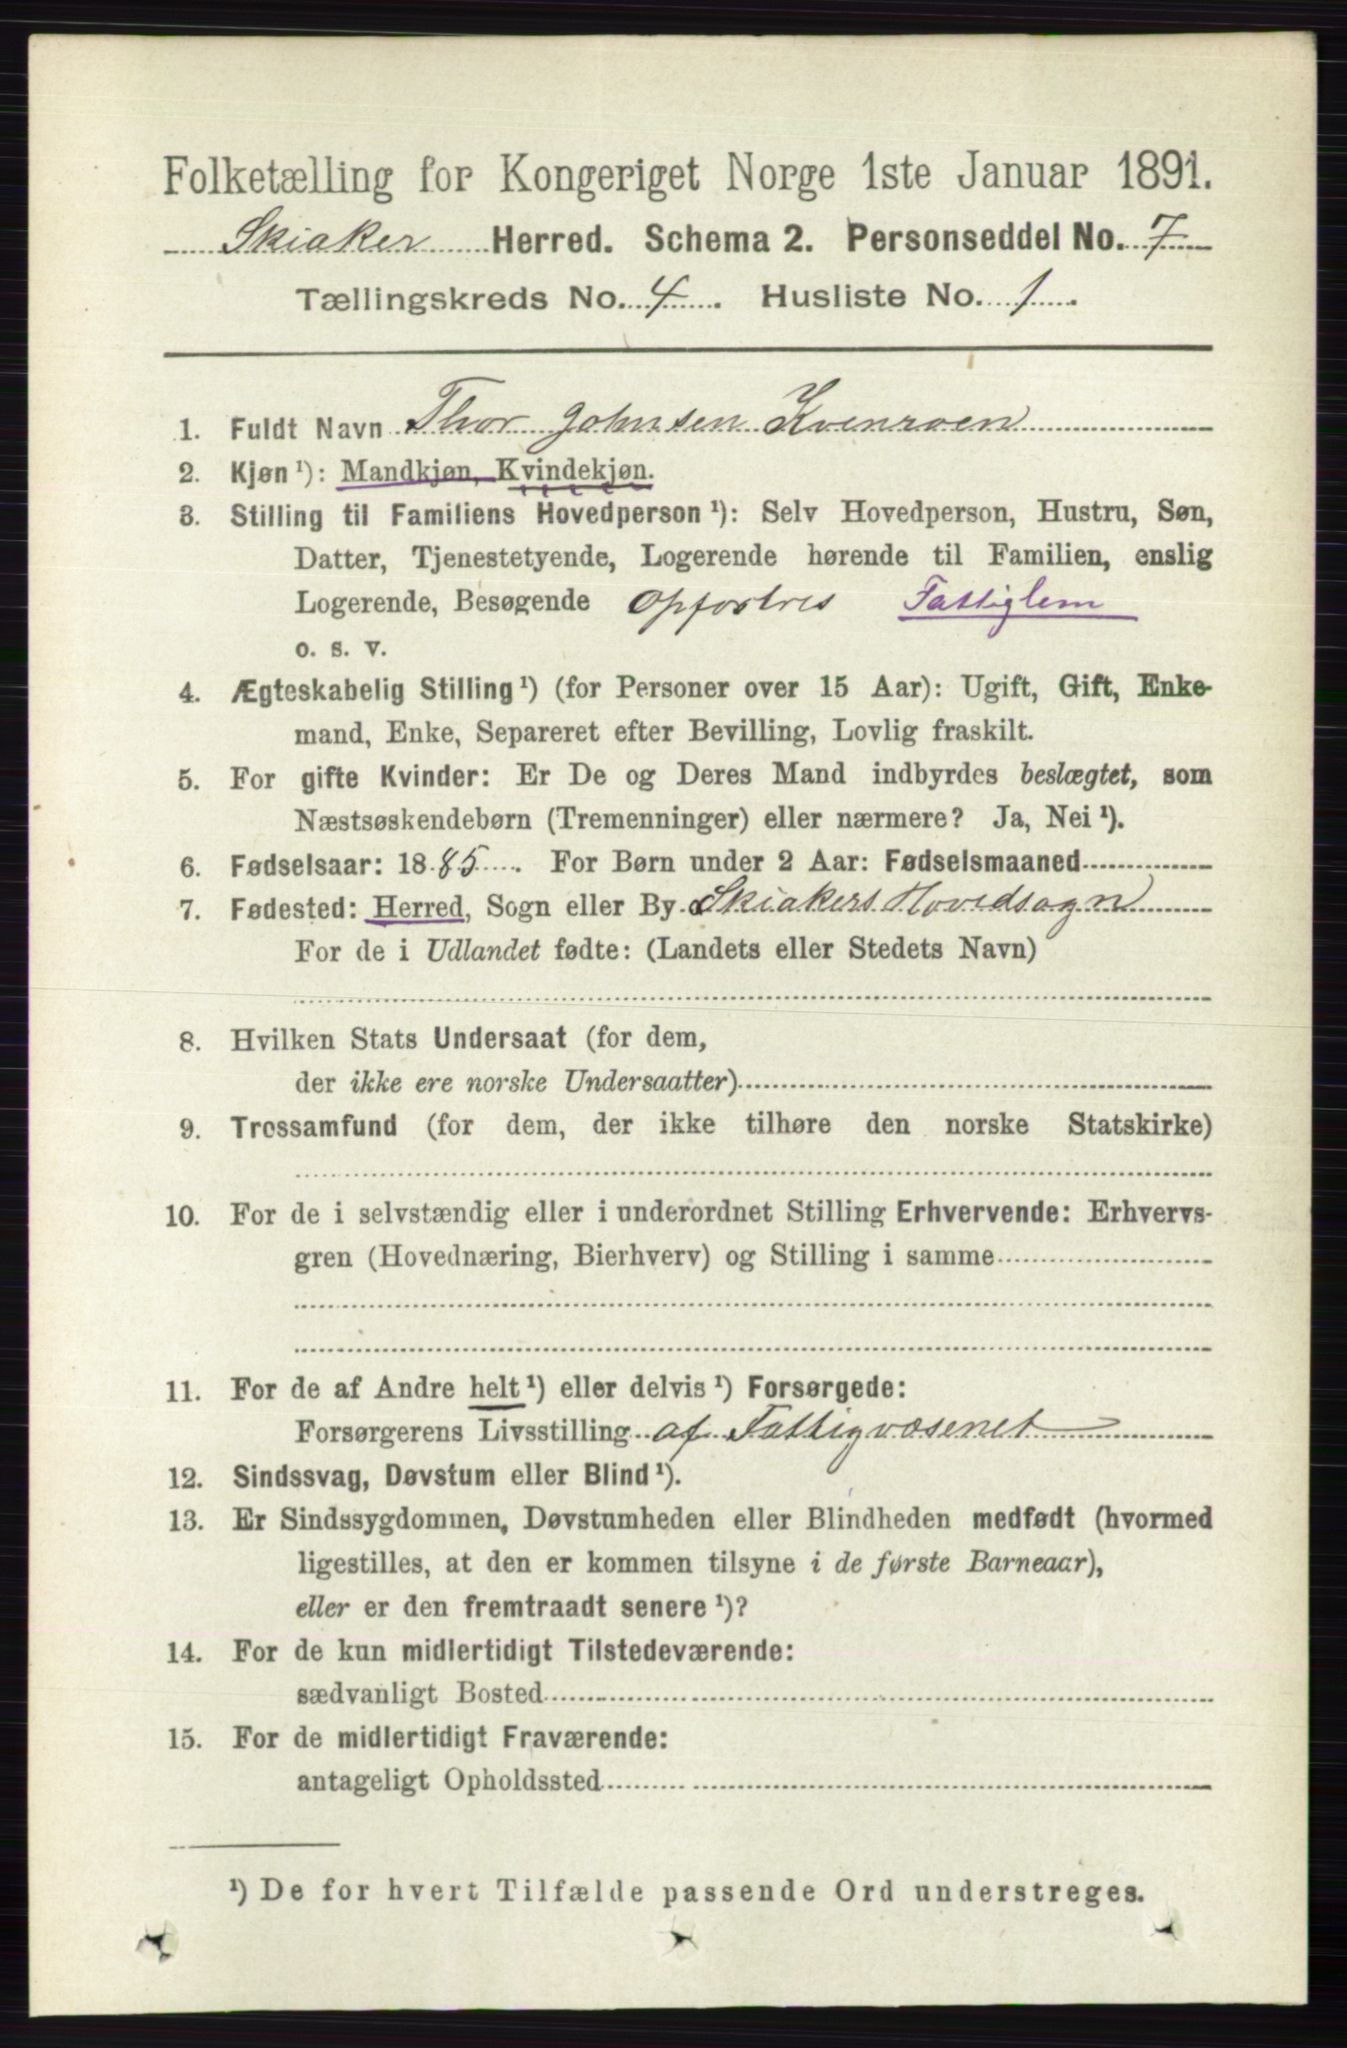 Folketælling for Kongeriget Norge 1ste Januar 1891.
Skiaker Herred. Schema 2. Personseddel No. 7
Tællingskreds No. 4. Husliste No. 1.
1. Fuldt Navn Thor Johnsen Kvenroen
2. Kjøn¹): Mandkjøn, Kvindekjøn.
3. Stilling til Familiens Hovedperson¹): Selv Hovedperson, Hustru, Søn,
Datter, Tjenestetyende, Logerende hørende til Familien, enslig
Logerende, Besøgende Opfostres Fattiglem
o. s. v.
4. Ægteskabelig Stilling¹) (for Personer over 15 Aar): Ugift, Gift, Enke-
mand, Enke, Separeret efter Bevilling, Lovlig fraskilt.
5. For gifte Kvinder: Er De og Deres Mand indbyrdes beslægtet, som
Næstsøskendebørn (Tremenninger) eller nærmere? Ja, Nei¹).
6. Fødselsaar: 1885. For Børn under 2 Aar: Fødselsmaaned
7. Fødested: Herred, Sogn eller By Skiakers Hovedsogn
For de i Udlandet fødte: (Landets eller Stedets Navn)
8. Hvilken Stats Undersaat (for dem,
der ikke ere norske Undersaatter)
9. Trossamfund (for dem, der ikke tilhøre den norske Statskirke)
10. For de i selvstændig eller i underordnet Stilling Erhvervende: Erhvervs-
gren (Hovednæring, Bierhverv) og Stilling i samme
11. For de af Andre helt¹) eller delvis¹) Forsørgede:
Forsørgerens Livsstilling af Fattigvæsenet
12. Sindssvag, Døvstum eller Blind¹).
13. Er Sindssygdommen, Døvstumheden eller Blindheden medfødt (hvormed
ligestilles, at den er kommen tilsyne i de første Barneaar),
eller er den fremtraadt senere¹)?
14. For de kun midlertidigt Tilstedeværende:
sædvanligt Bosted
15. For de midlertidigt Fraværende:
antageligt Opholdssted
¹) De for hvert Tilfælde passende Ord understreges.